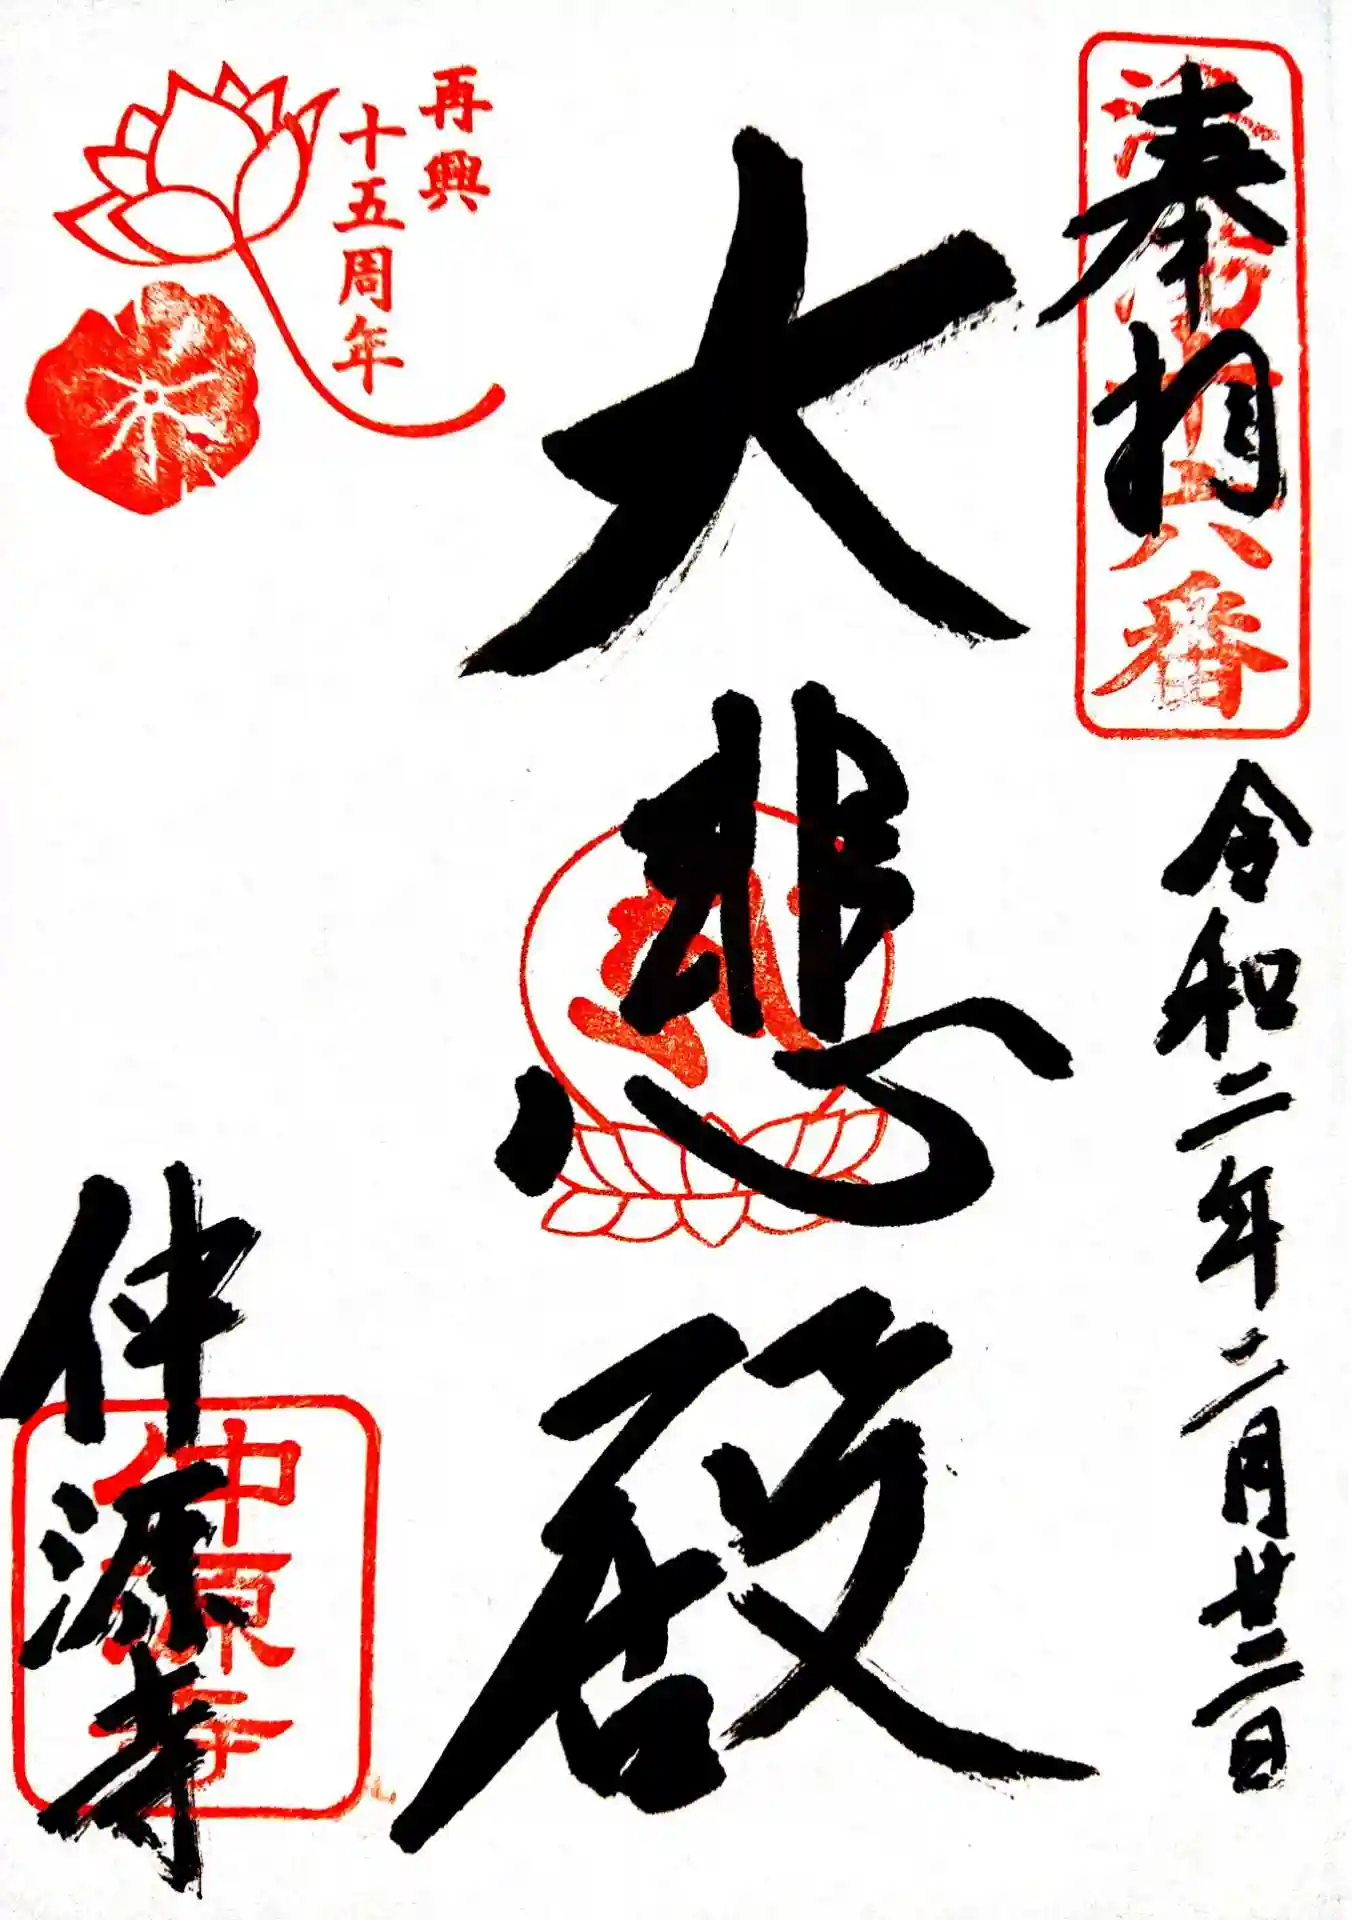 奉拝
洛陽十六番
令和二年二月廿二日
大悲殿
再興
十五周年
仲源寺
仲源寺